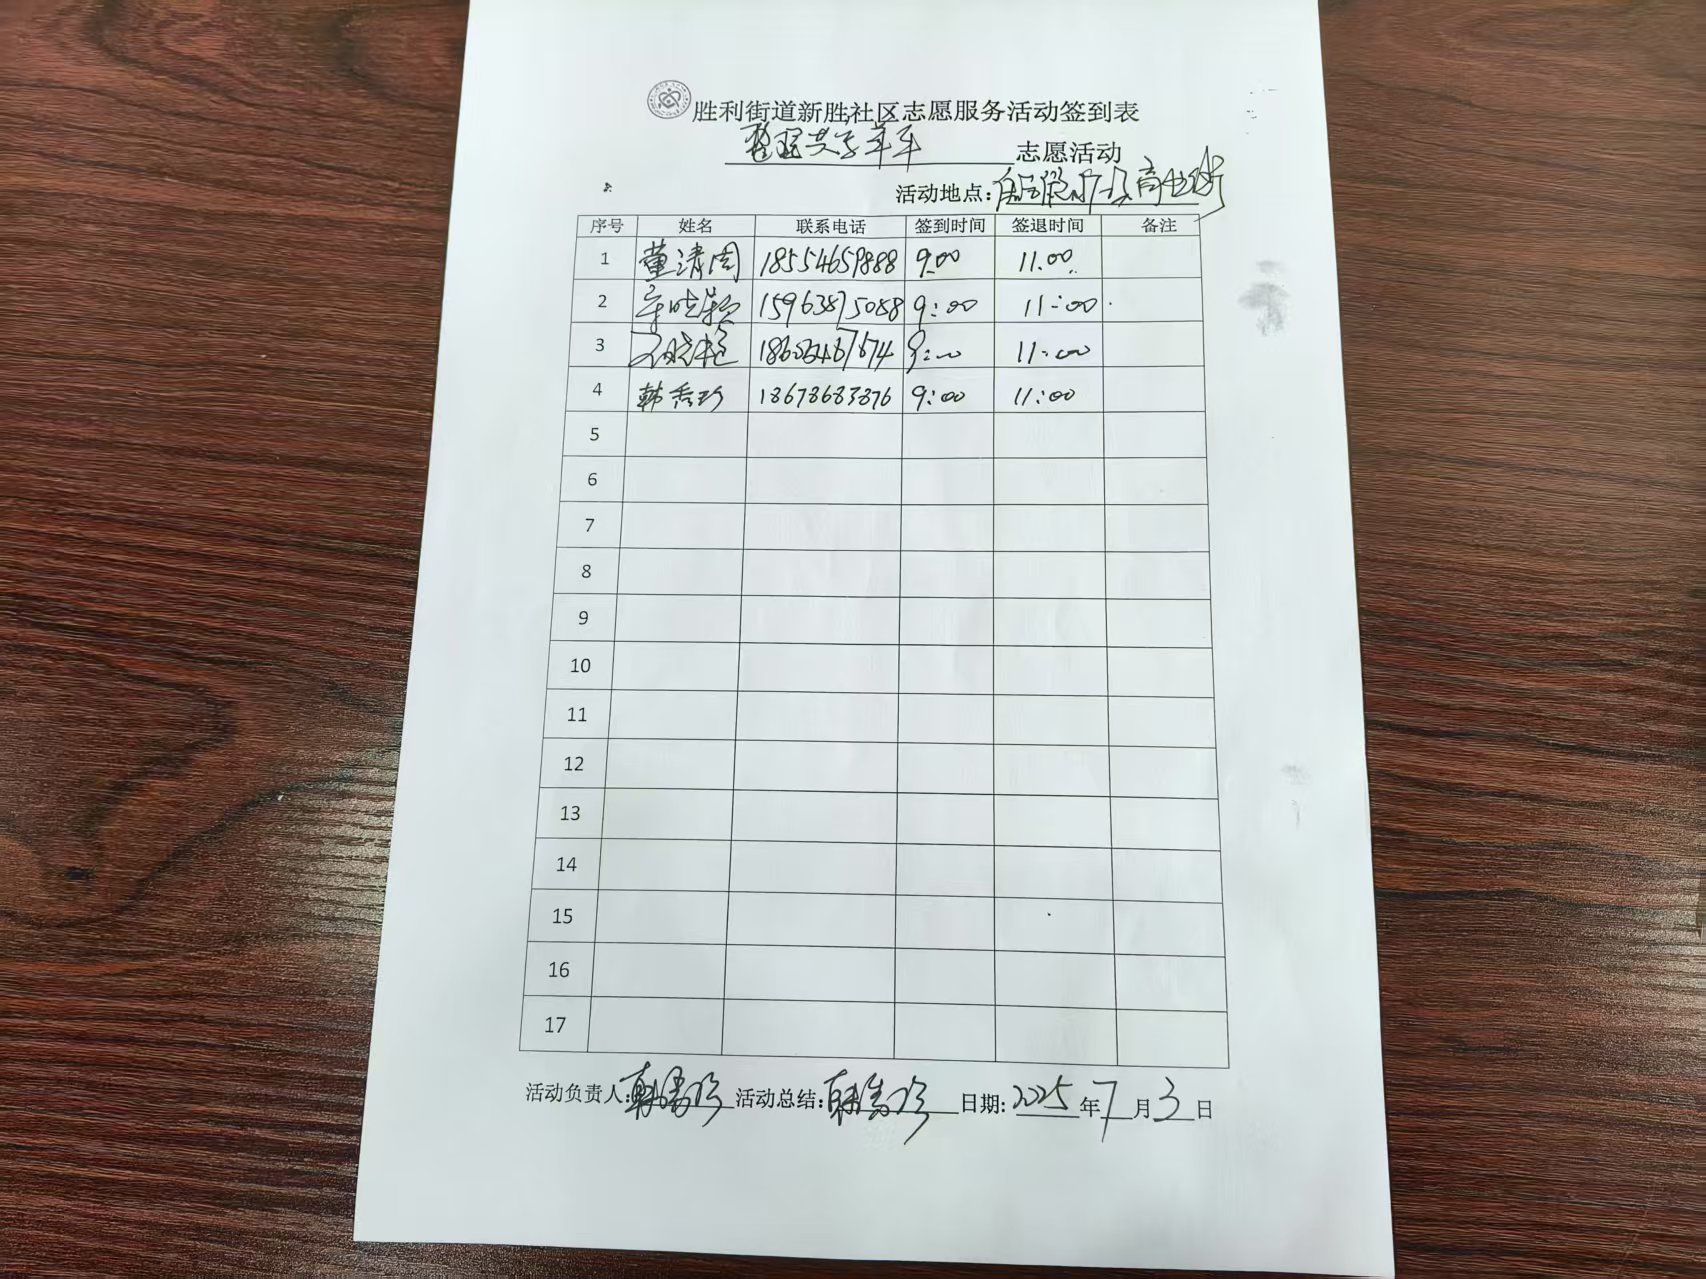 胜利街道新胜社区志愿服务活动签到表
整理共享单车 志愿活动
活动地点: 商业街
序号 姓名 联系电话 签到时间 签退时间 备注
1 董清周 18554659888 9:00 11:00
2 15963875088 9:00 11:00
3 9:00 11:00
4 韩秀珍 18678683876 9:00 11:00
5
6
7
8
9
10
11
12
13
14
15
16
17
活动负责人: 韩秀珍 活动总结: 韩秀珍 日期: 2025 年 7 月 3 日